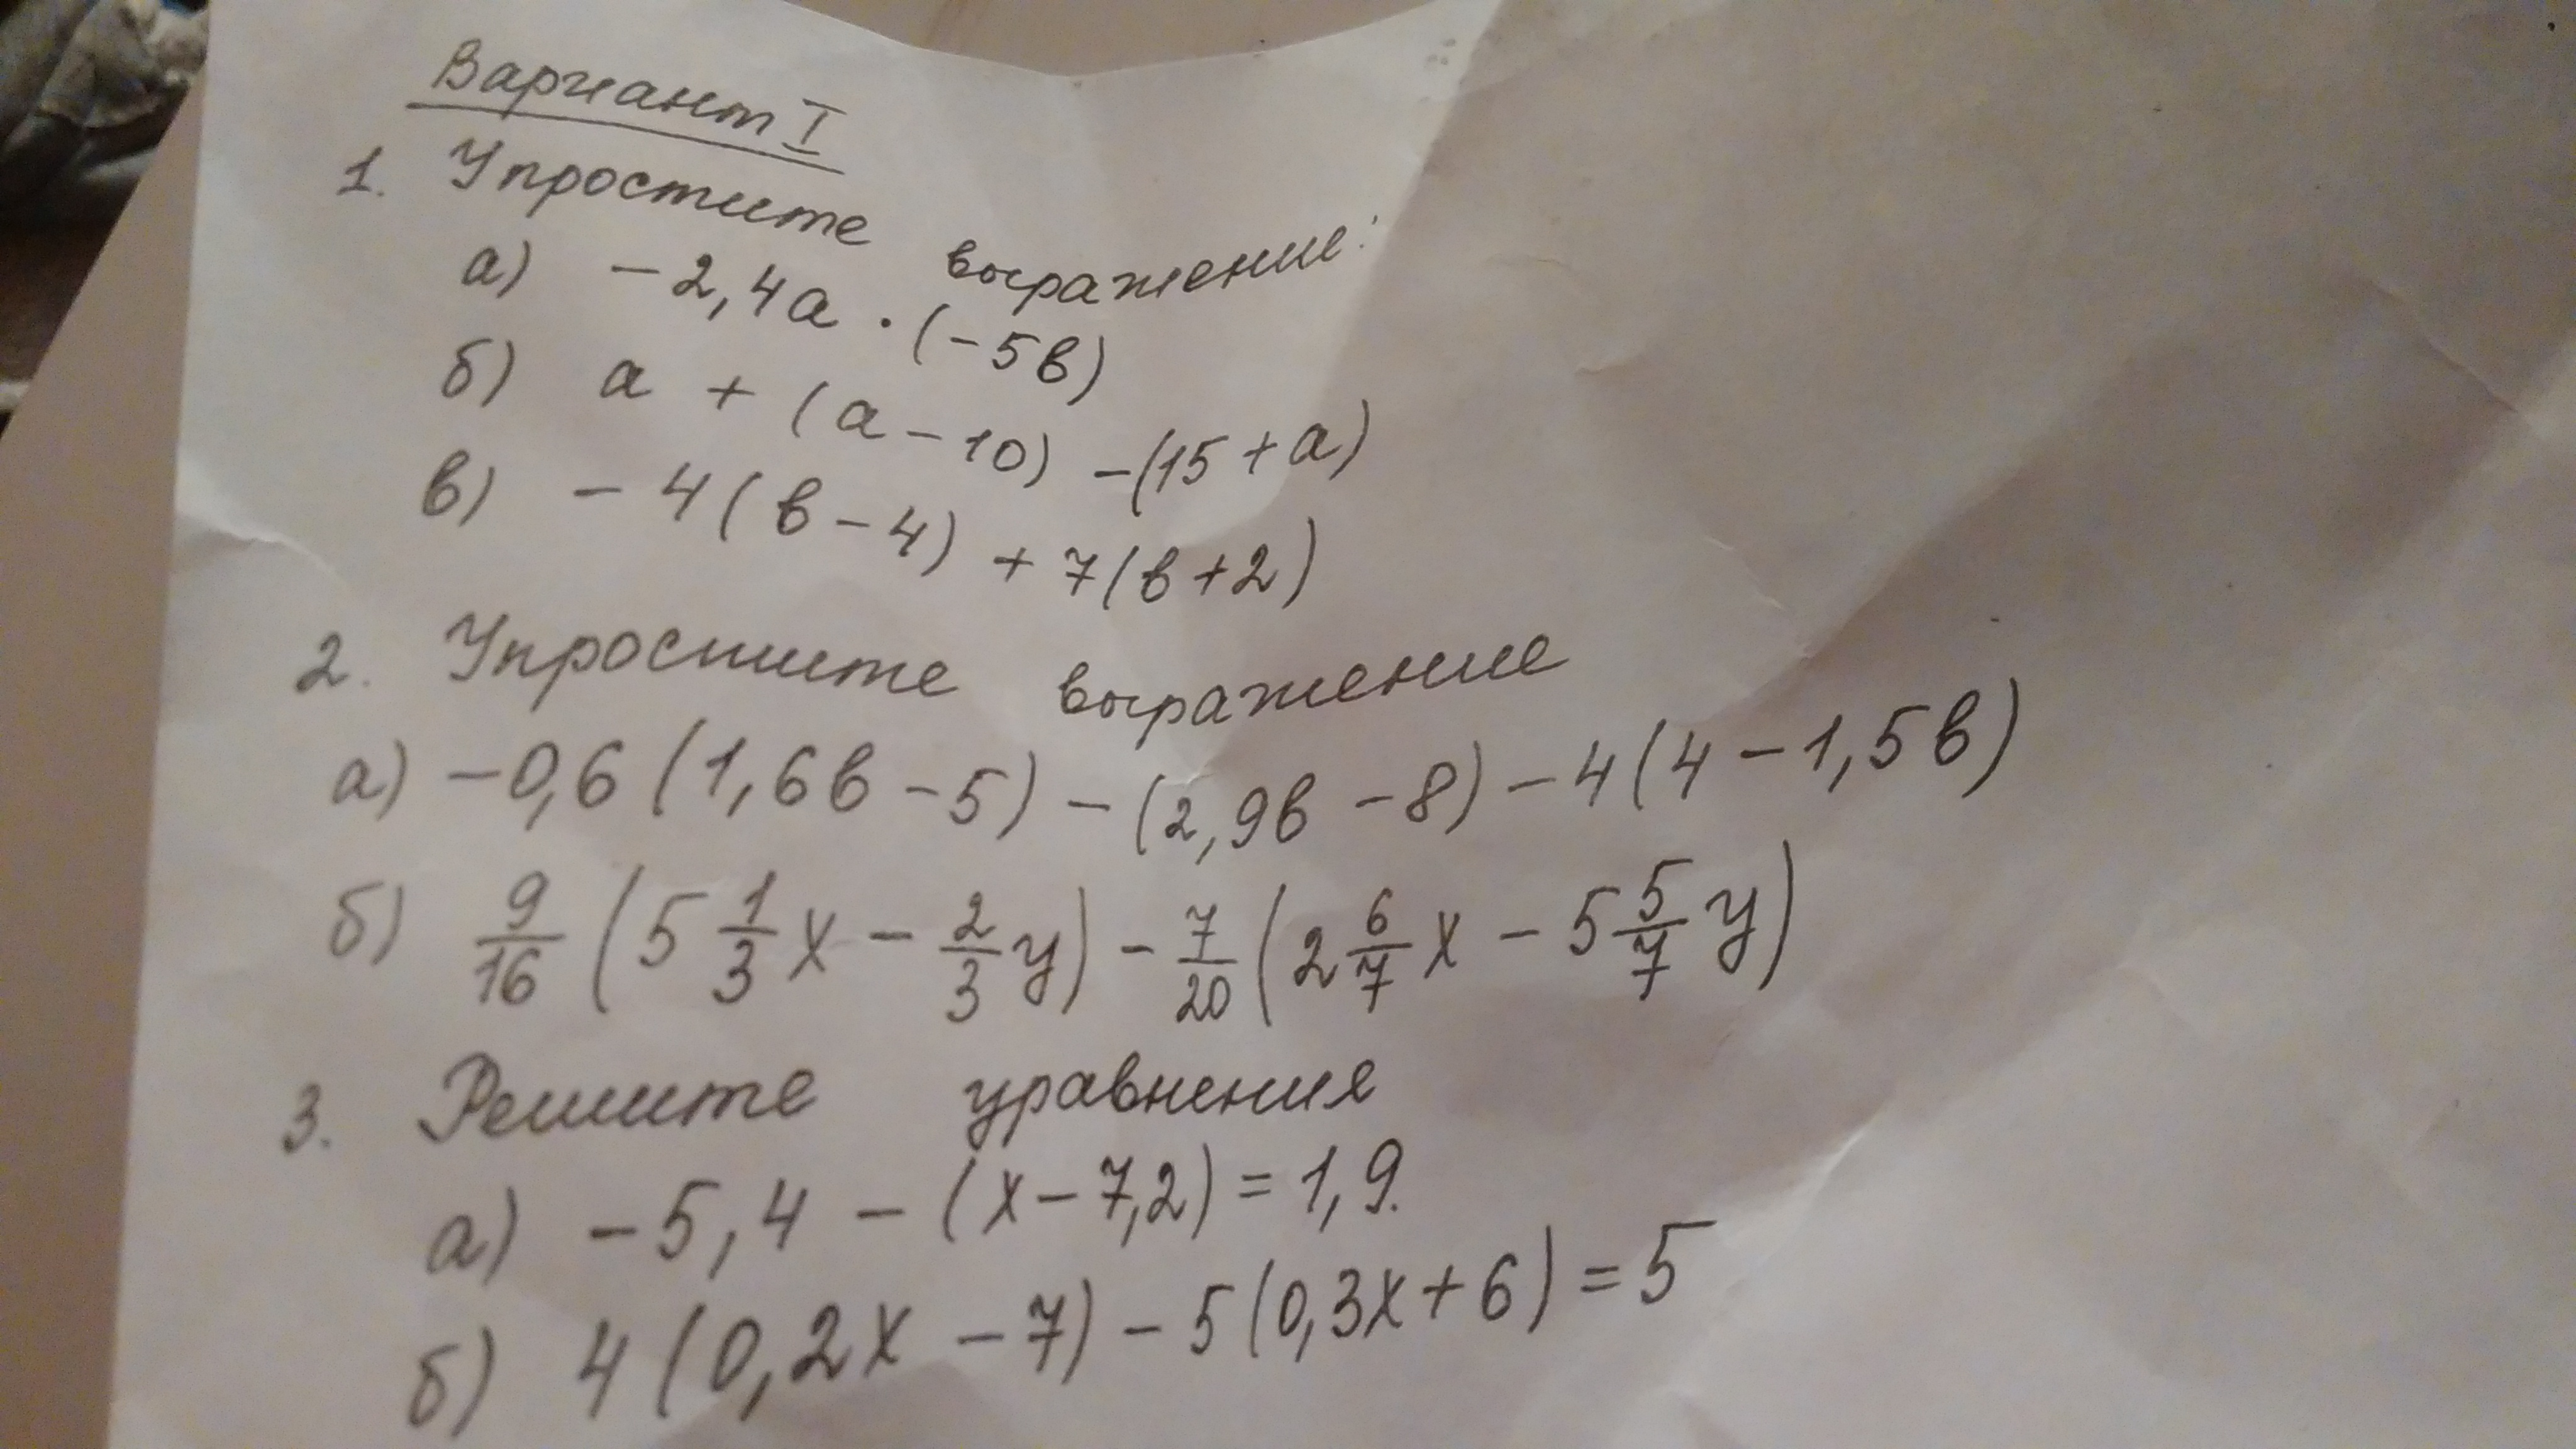 Вариант I
1. Упростите выражение:
а) -2,4а · (-5в)
б) а + (а - 10) - (15 + а)
в) -4(в - 4) + 7(в + 2)
2. Упростите выражение
а) -0,6(1,6в - 5) - (2,9в - 8) - 4(4 - 1,5в)
б) 9/16 (5 1/3 х - 2/3 у) - 7/20 (2 6/7 х - 5 5/7 у)
3. Решите уравнения
а) -5,4 - (х - 7,2) = 1,9.
б) 4(0,2х - 7) - 5(0,3х + 6) = 5